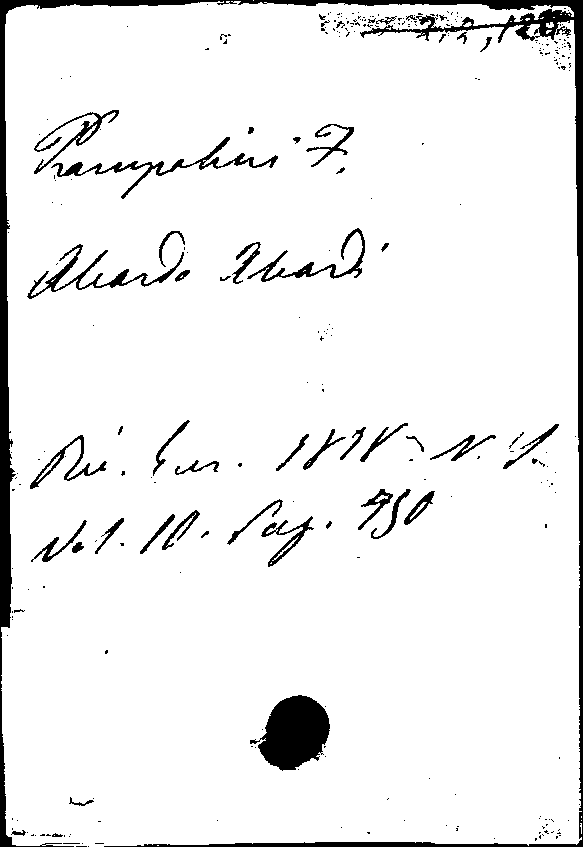 Prampolini F.
Aleardo Aleardi
Riv. Eur. 1878 - N. S.
Vol. 10. Pag. 750